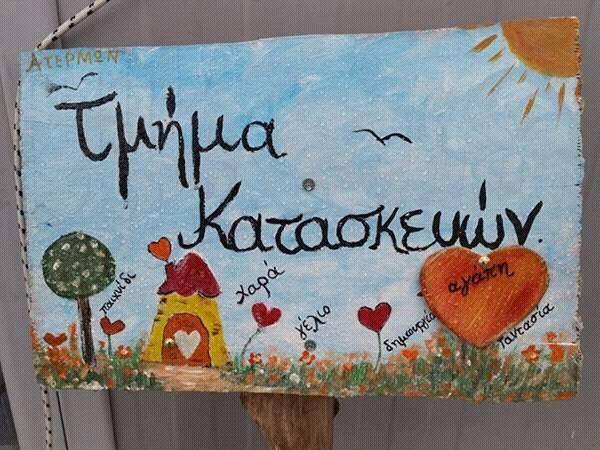 ΑΤΕΡΜΩΝ
Τμήμα
Κατασκευών.
παιχνίδι
χαρά
γέλιο
δημιουργία
αγάπη
φαντασία